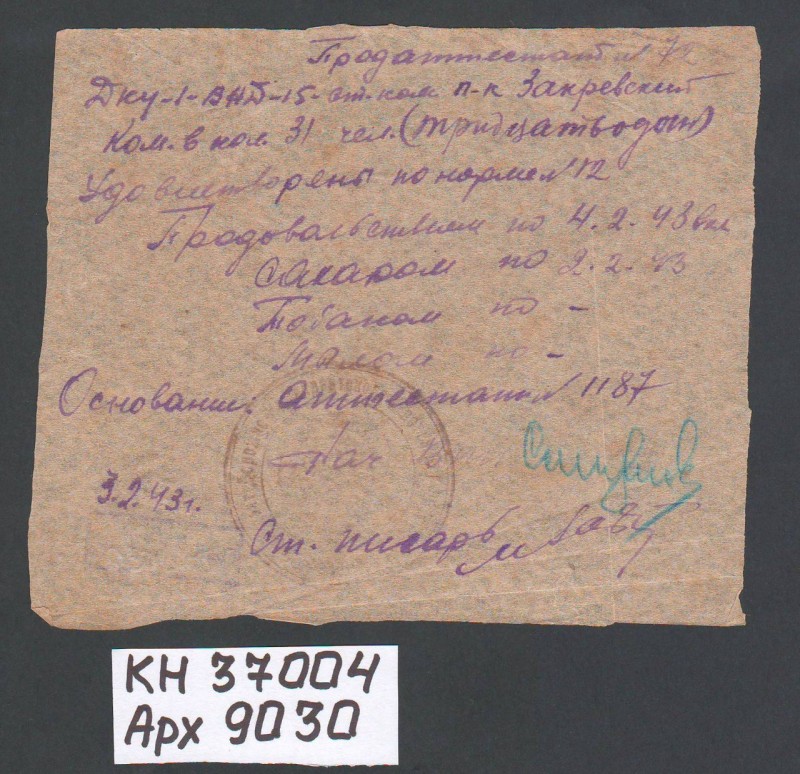 Продаттестат № 72
Дку-1-ВНД-15-ст. ком п-к Закревский
Ком. в кол. 31 чел. (тридцатьодин)
Удовлетворены по норме № 12
Продовольствием по 4.2.43 вкл
Сахаром по 2.2.43
Табаком по -
Мылом по -
Основание: аттестат № 1187
Нач
3.2.43 г.
Ст. писарь
КН 37004
Арх 9030